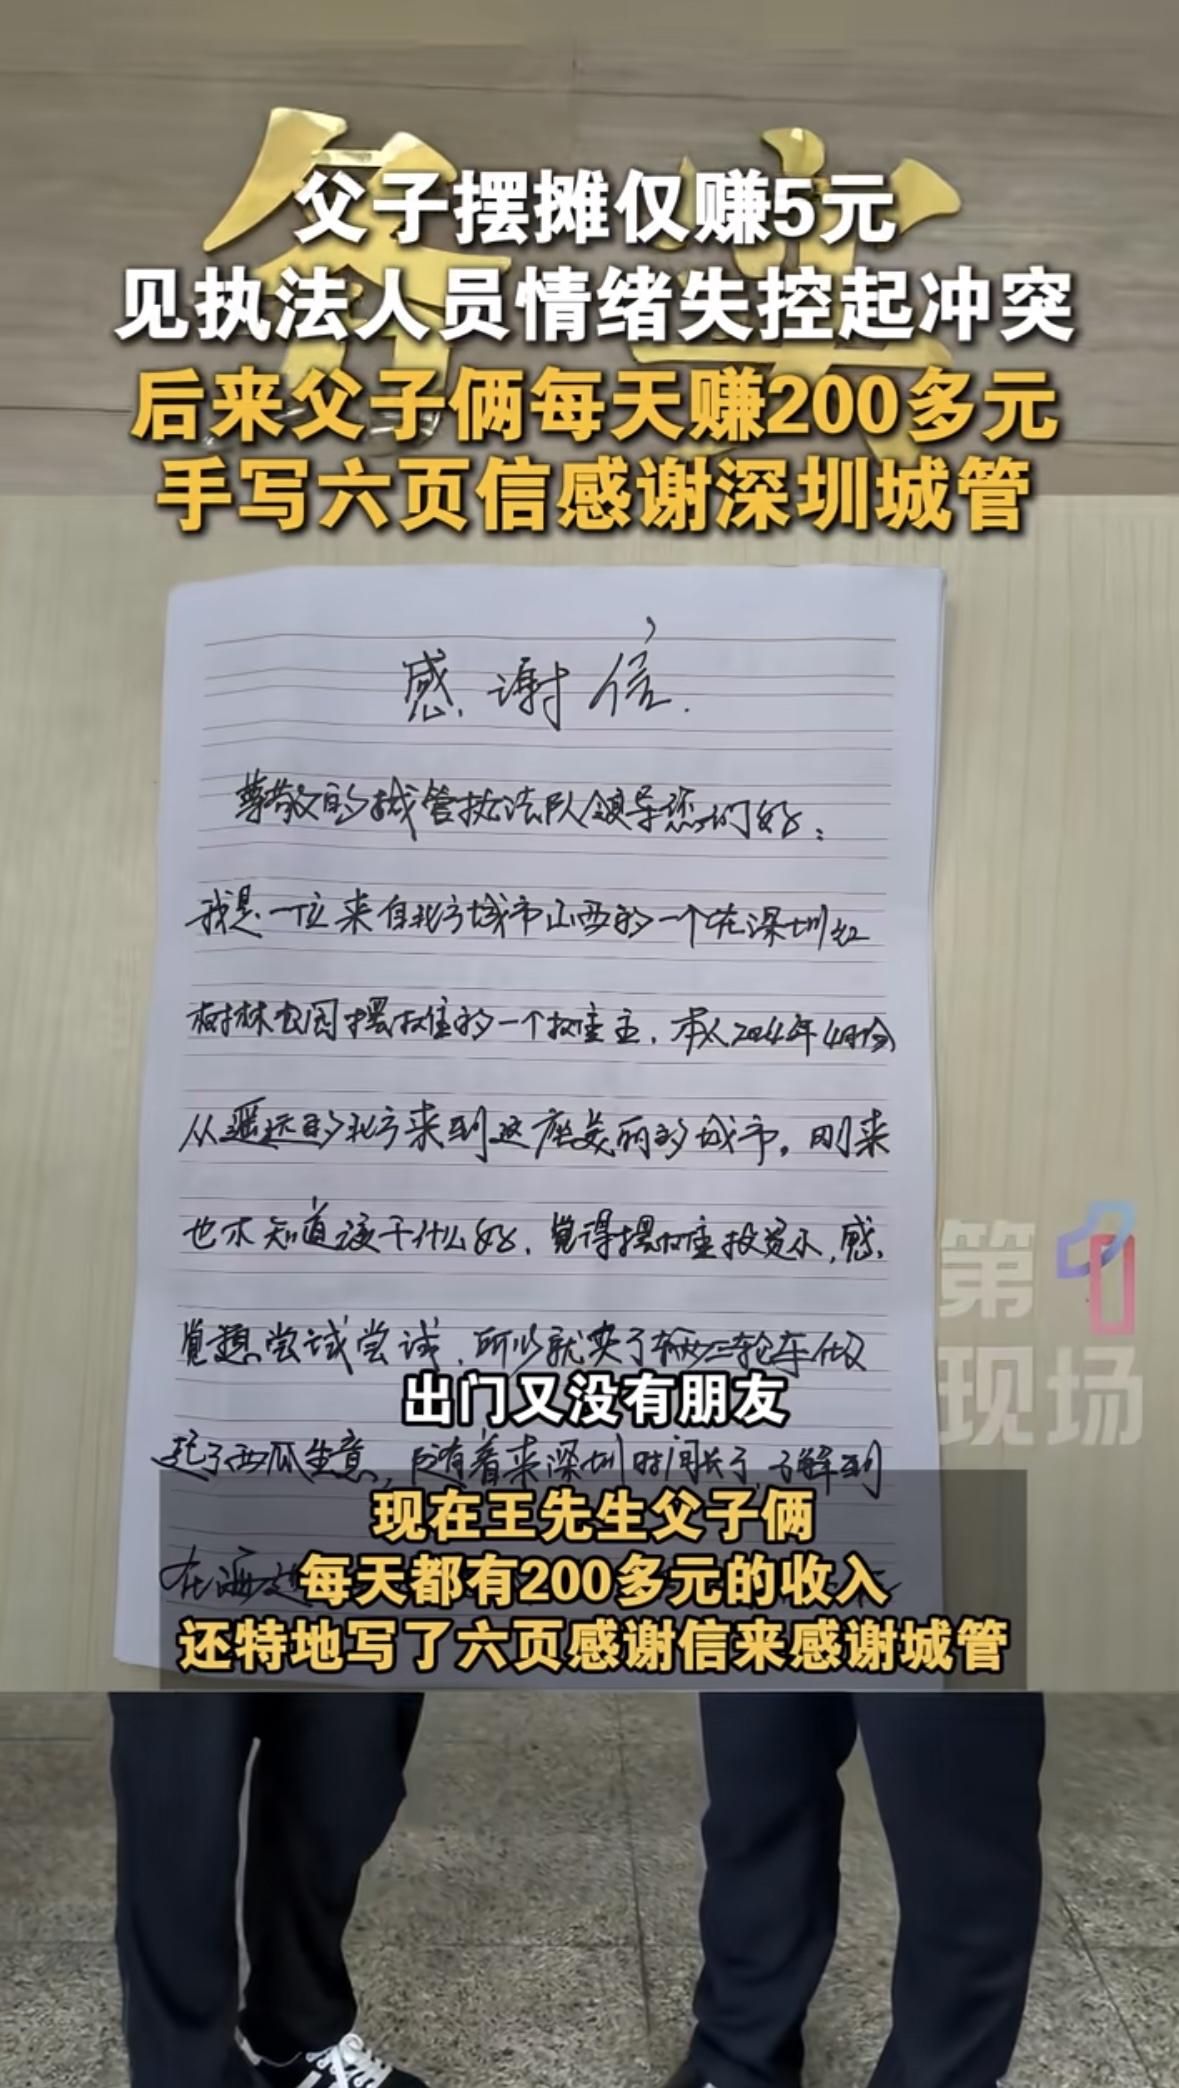 父子摆摊仅赚5元
见执法人员情绪失控起冲突
后来父子俩每天赚200多元
手写六页信感谢深圳城管
感谢信
尊敬的城管执法队领导您们好:
我是一位来自北方城市山西的一个在深圳红
树林公园摆摊的一个摊主,本人2024年4月份
从遥远的北方来到这座美丽的城市。刚来
也不知道该干什么好,觉得摆摊投资小,感
觉想尝试尝试,所以就买了辆三轮车做
出门又没有朋友
起了西瓜生意,随着来深圳时间长了,了解到
在海边
现在王先生父子俩
每天都有200多元的收入
还特地写了六页感谢信来感谢城管
第1
现场